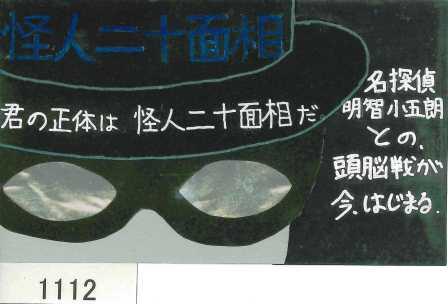 怪人二十面相
君の正体は 怪人二十面相だ.
名探偵
明智小五朗
との.
頭脳戦が
今.はじまる.
1112